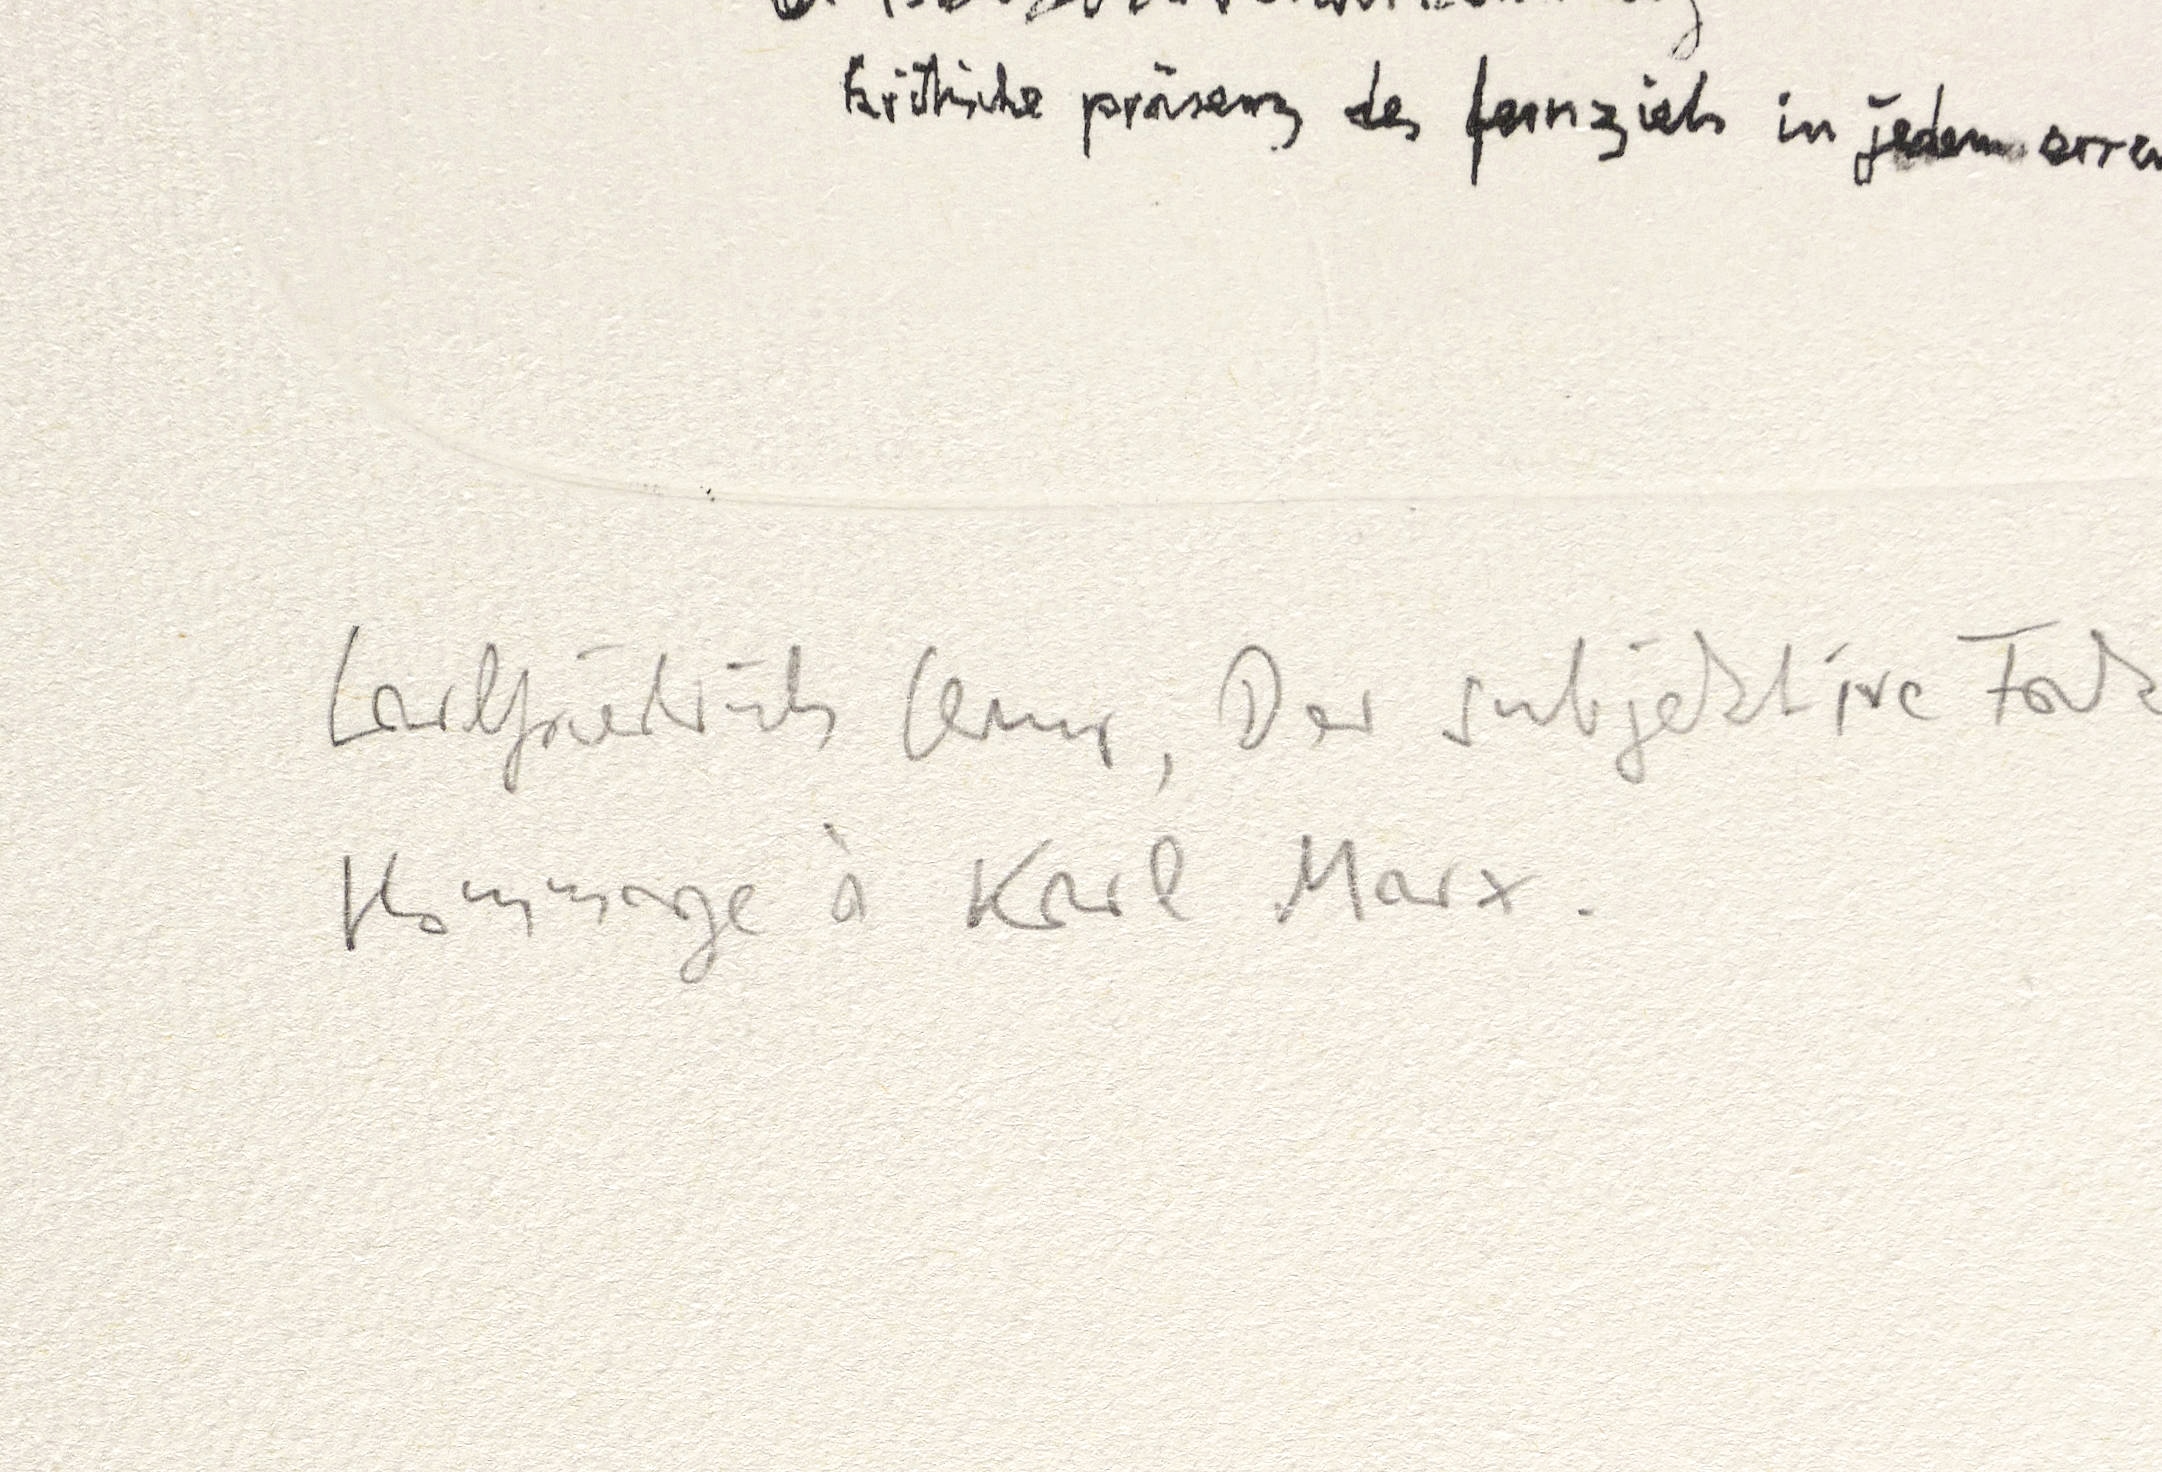 kritische präsenz des fernziels in jedem erre
Carlfriedrich Claus, Der subjektive Fak
Hommage à Karl Marx.